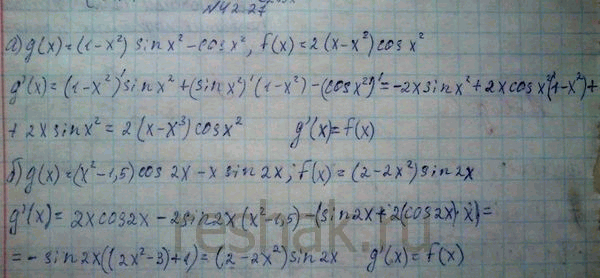 №42.27
а) g(x)=(1-x²) sin x² - cos x², f(x)=2(x-x³)cos x²
g'(x)=(1-x²)'sin x² + (sin x²)'(1-x²) - (cos x²)' = -2x sin x² + 2x cos x²(1-x²)+
+ 2x sin x² = 2(x-x³)cos x² g'(x)=f(x)
б) g(x)=(x²-1,5)cos 2x - x sin 2x; f(x)=(2-2x²)sin 2x
g'(x)= 2x cos2x - 2sin2x(x²-1,5) - (sin2x + 2(cos2x)·x)=
= - sin2x((2x²-3)+1)=(2-2x²)sin2x g'(x)=f(x)
reshak.ru